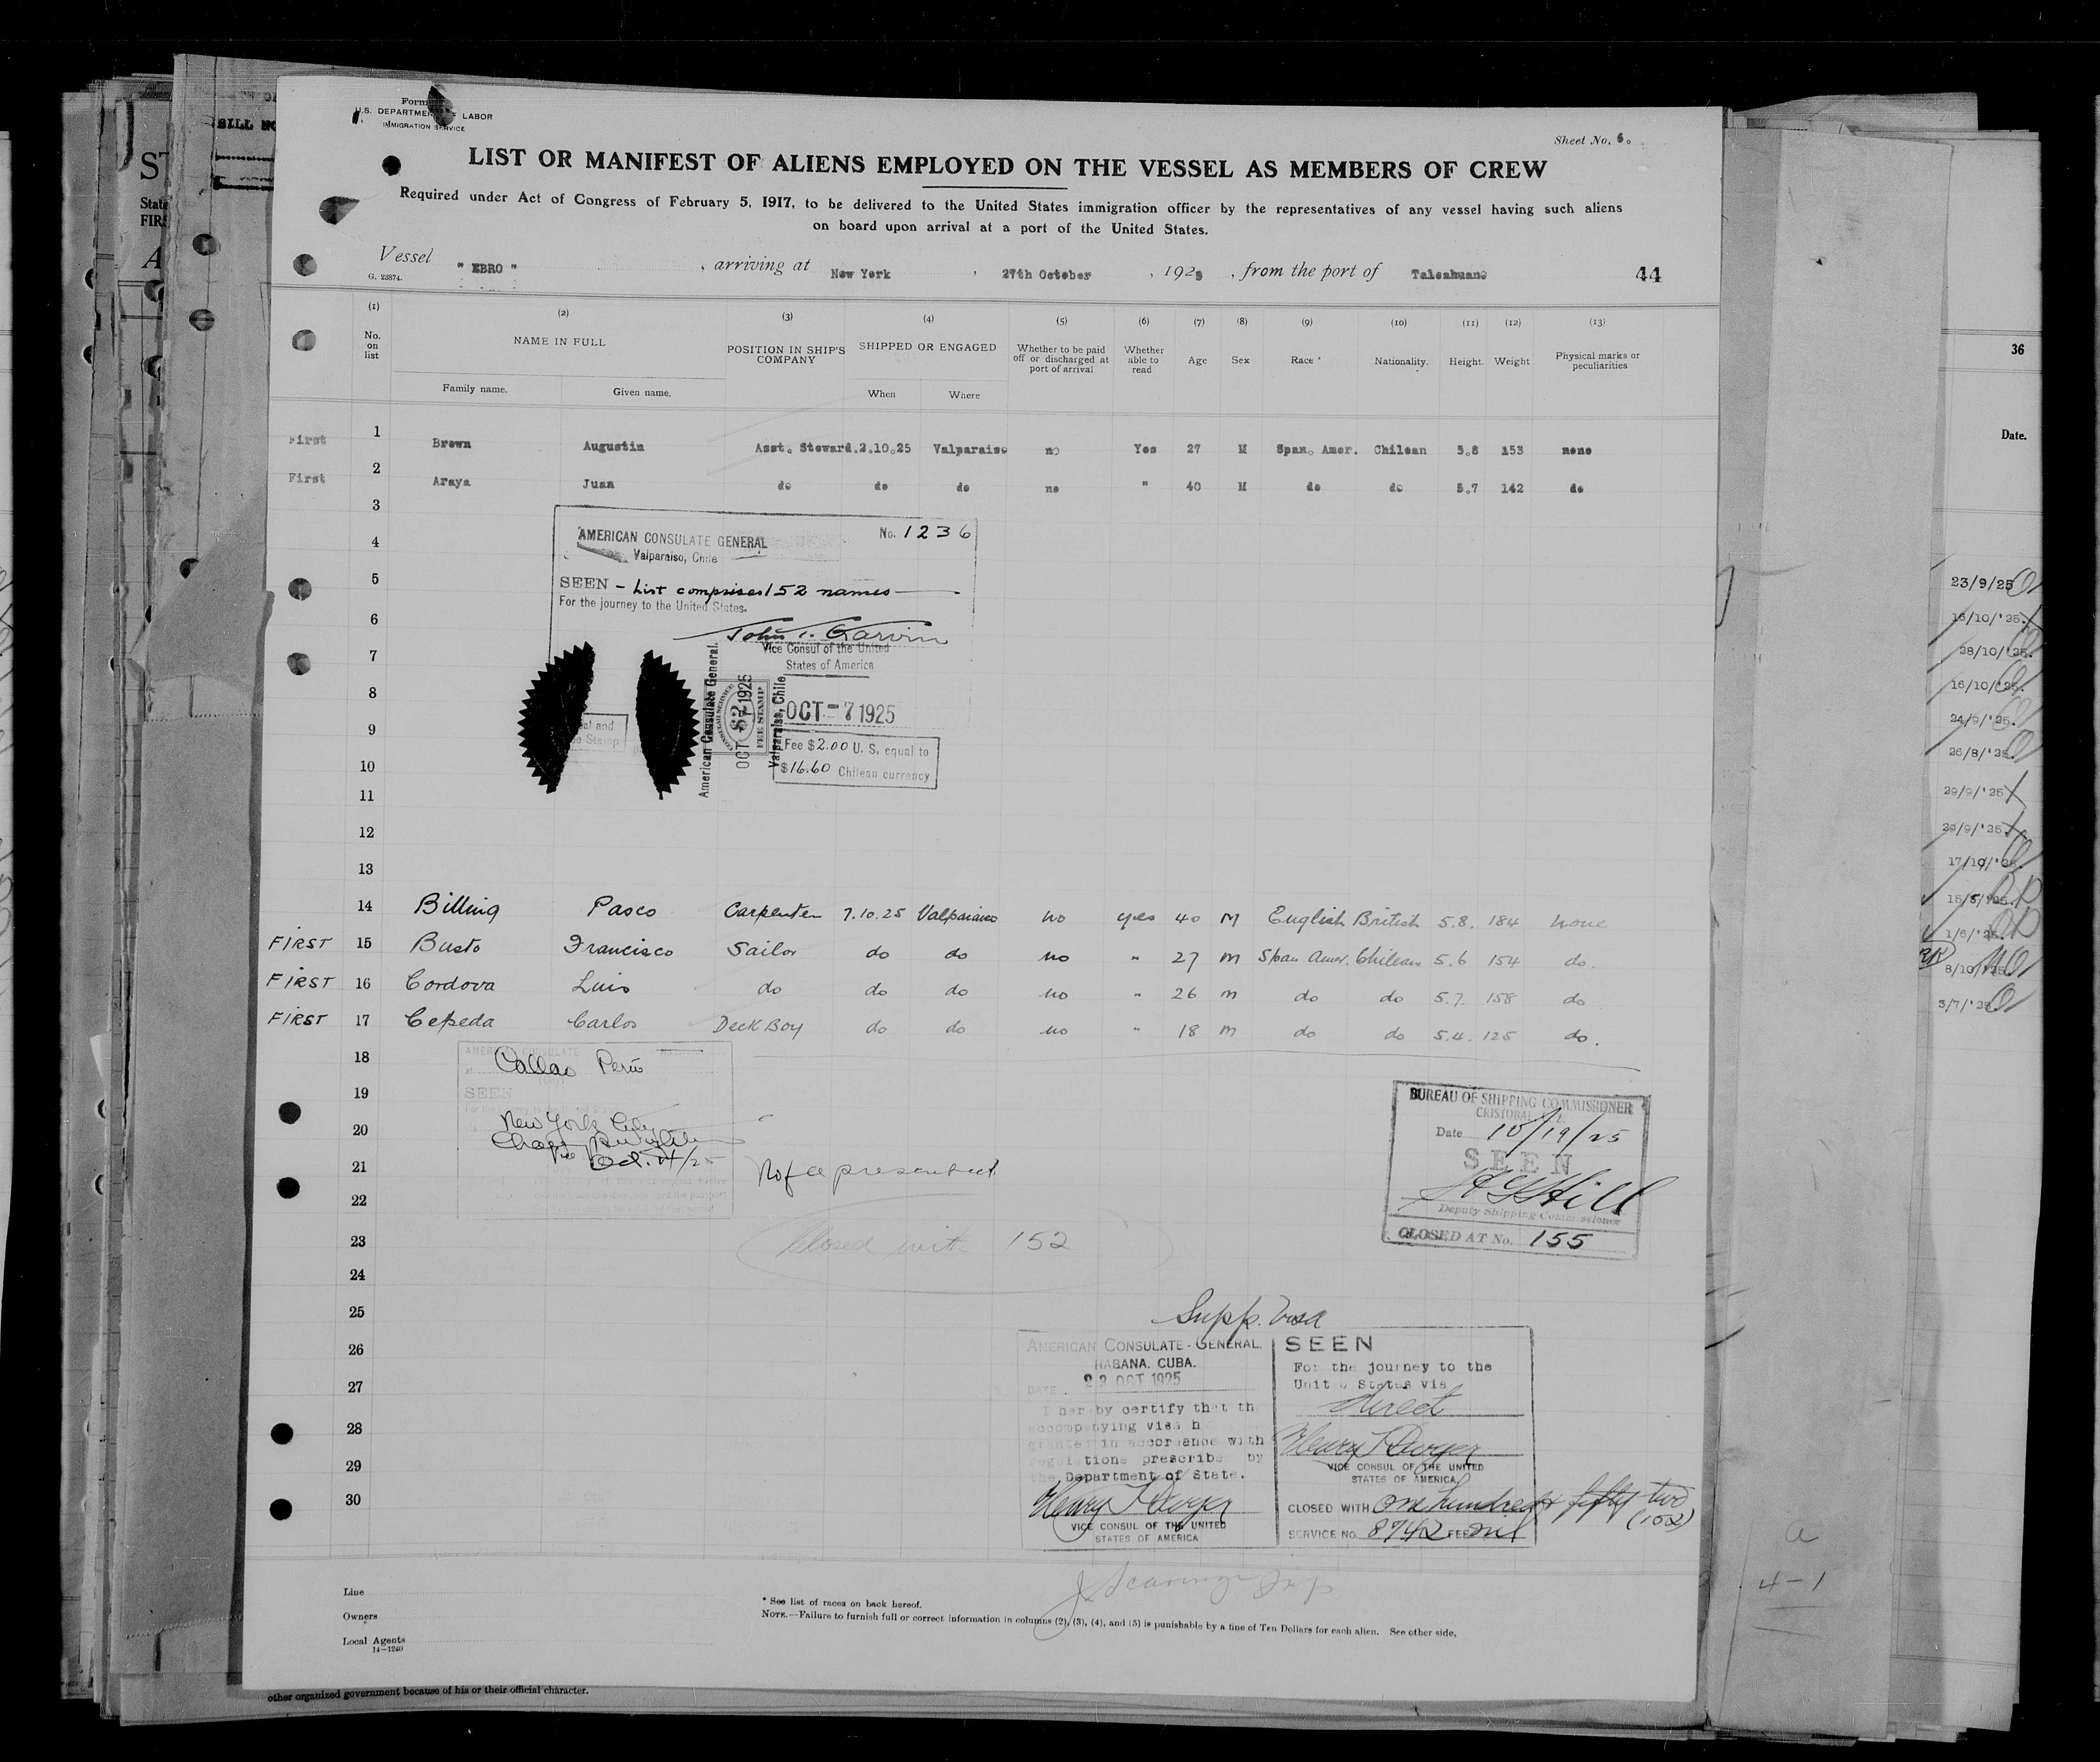 BILL
ST
State
FIRS
A
Form
U.S. DEPARTMENT OF LABOR
IMMIGRATION SERVICE
Sheet No. 6.
LIST OR MANIFEST OF ALIENS EMPLOYED ON THE VESSEL AS MEMBERS OF CREW
Required under Act of Congress of February 5, 1917, to be delivered to the United States immigration officer by the representatives of any vessel having such aliens
on board upon arrival at a port of the United States.
Vessel " EBRO " , arriving at New York , 27th October , 1925 , from the port of Talcahuano 44
G. 23874.
(1) (2) (3) (4) (5) (6) (7) (8) (9) (10) (11) (12) (13)
No. on list NAME IN FULL POSITION IN SHIP'S COMPANY SHIPPED OR ENGAGED Whether to be paid off or discharged at port of arrival Whether able to read Age Sex Race * Nationality. Height. Weight Physical marks or peculiarities
Family name. Given name. When Where
First 1 Brown Augustin Asst. Steward. 2.10.25 Valparaiso no Yes 27 M Span. Amer. Chilean 5.8 153 none
First 2 Araya Juan do do do no " 40 M do do 5.7 142 do
3
AMERICAN CONSULATE GENERAL No. 1236
4
Valparaiso, Chile
5
SEEN - List comprises 152 names
For the journey to the United States.
6
John T. Garvin
7
Vice Consul of the United
States of America
American Consulate General.
Valparaiso, Chile.
OCT 7 1925
CONSULAR SERVICE
$2
FEE STAMP
8
OCT - 7 1925
9
Fee $2.00 U. S. equal to
$16.60 Chilean currency
10
11
12
13
14 Billing Pasco Carpenter 7.10.25 Valparaiso no yes 40 M English British 5.8. 184 none
FIRST 15 Busto Francisco Sailor do do no " 27 m Span Amer. Chilean 5.6 154 do.
FIRST 16 Cordova Luis do do do no " 26 m do do 5.7. 158 do
FIRST 17 Cepeda Carlos Deck Boy do do no " 18 m do do 5.4. 125 do.
18
AMERICAN CONSULATE
at Callao Peru
19
SEEN
20
New York City
Oct. 14/25
21
No fee presented
22
23
Closed with 152
24
BUREAU OF SHIPPING COMMISSIONER
CRISTOBAL
Date 10/19/25
SEEN
Hill
Deputy Shipping Commissioner
CLOSED AT No. 155
25
Supp. Visa
26
AMERICAN CONSULATE-GENERAL.
HABANA. CUBA.
27
DATE. 22 OCT 1925
I hereby certify that th
28
accompanying visa h
granted in accordance with
29
regulations prescribe by
the Department of State.
30
Henry T Dwyer
VICE CONSUL OF THE UNITED
STATES OF AMERICA
SEEN
For the journey to the
United States via
direct
Henry T Dwyer
VICE CONSUL OF THE UNITED
STATES OF AMERICA
CLOSED WITH One hundred & fifty two
(152)
SERVICE NO. 8742 FEE nil
Line
Owners
Local Agents
14—1240
* See list of races on back hereof.
NOTE.—Failure to furnish full or correct information in columns (2), (3), (4), and (5) is punishable by a fine of Ten Dollars for each alien. See other side.
other organized government because of his or their official character.
36
Date.
23/9/25
16/10/'25.
28/10/'25.
16/10/'25.
24/9/'25.
26/8/'25
29/9/'25
29/9/'25
17/10/'25.
15/5/'25.
1/6/'25
8/10/'25
3/7/'25
4-1